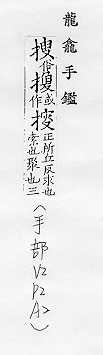 龍龕手鑑
搜俗㨱或作㛐正所立反求也索也聚也三
(手部V2P2A)